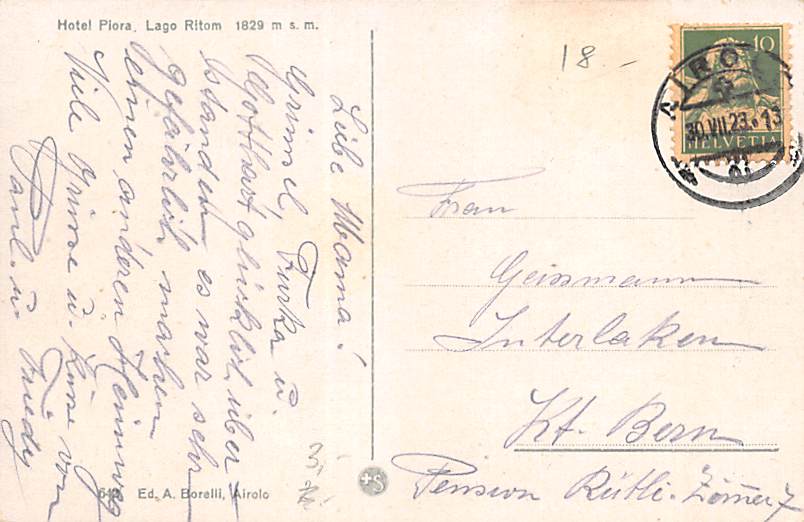 Hotel Piora, Lago Ritom 1829 m s. m.
18.-
10
HELVETIA
AIROLO
30.VII.23.13
Liebe Mama!
Grimsel, Furka u.
Gotthart glücklich über-
standen es war sehr
gefährlich, machen
einen anderen Heimweg
Viele Grüsse u. Küsse von
Paul u. Trudy
Frau
Geissmann
Interlaken
Kt. Bern
Pension Rütli. Zimmer 7
Ed. A. Borelli, Airolo